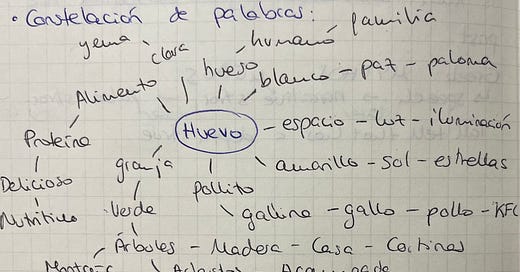 • Constelación de palabras:
yema clara humano familia
hueso
Alimento blanco - paz - paloma
Huevo - espacio - luz - iluminación
Proteína granja amarillo - sol - estrellas
Delicioso pollito
Nutritivo Verde gallina - gallo - pollo - KFC
Árboles - Madera - Casa - Cortinas